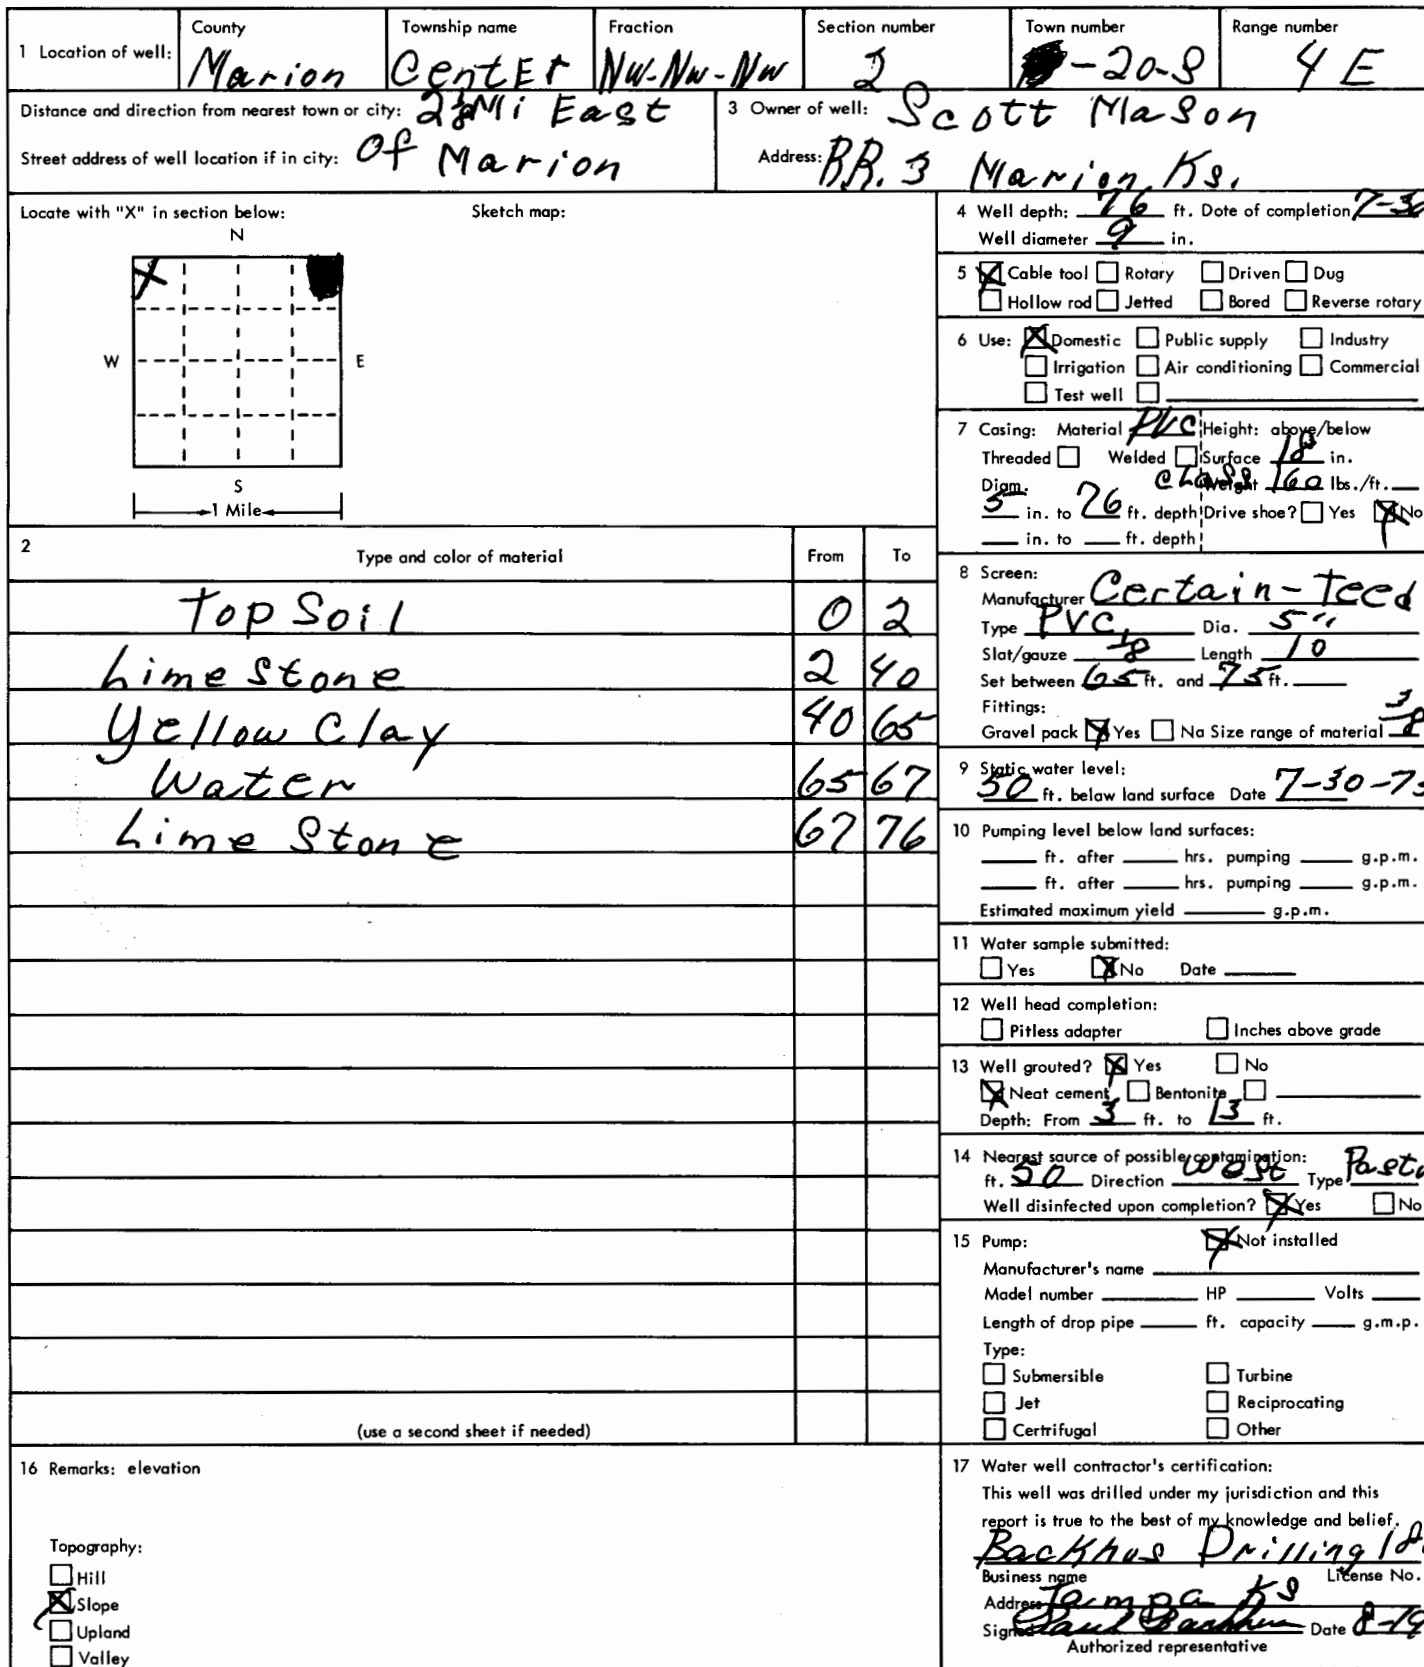 1 Location of well: County Township name Fraction Section number Town number Range number
Marion CentEr NW-NW-NW 2 -20-S 4 E
Distance and direction from nearest town or city: 2 1/8 Mi East
Street address of well location if in city: Of Marion
3 Owner of well: Scott Mason
Address: RR. 3 Marion, Ks.
Locate with "X" in section below: Sketch map:
N
X
W E
S
1 Mile
2 Type and color of material From To
Top Soil 0 2
Lime Stone 2 40
Yellow Clay 40 65
Water 65 67
Lime Stone 67 76
(use a second sheet if needed)
16 Remarks: elevation
Topography:
Hill
X Slope
Upland
Valley
4 Well depth: 76 ft. Date of completion 7-30
Well diameter 9 in.
5 X Cable tool Rotary Driven Dug
Hollow rod Jetted Bored Reverse rotary
6 Use: X Domestic Public supply Industry
Irrigation Air conditioning Commercial
Test well
7 Casing: Material PVC Height: above/below
Threaded Welded Surface 18 in.
Diam. Class Weight 160 lbs./ft.
5 in. to 76 ft. depth Drive shoe? Yes X No
in. to ft. depth
8 Screen:
Manufacturer Certain-Teed
Type PVC Dia. 5"
Slat/gauze 1/8 Length 10
Set between 65 ft. and 75 ft.
Fittings:
Gravel pack X Yes Na Size range of material 3/8
9 Static water level:
50 ft. below land surface Date 7-30-75
10 Pumping level below land surfaces:
ft. after hrs. pumping g.p.m.
ft. after hrs. pumping g.p.m.
Estimated maximum yield g.p.m.
11 Water sample submitted:
Yes X No Date
12 Well head completion:
Pitless adapter Inches above grade
13 Well grouted? X Yes No
X Neat cement Bentonite
Depth: From 3 ft. to 13 ft.
14 Nearest source of possible contamination:
ft. 50 Direction West Type Pastu
Well disinfected upon completion? X Yes No
15 Pump: X Not installed
Manufacturer's name
Madel number HP Volts
Length of drop pipe ft. capacity g.m.p.
Type:
Submersible Turbine
Jet Reciprocating
Certrifugal Other
17 Water well contractor's certification:
This well was drilled under my jurisdiction and this
report is true to the best of my knowledge and belief.
Backhus Drilling 18
Business name License No.
Address Tampa KS
Signed Paul Backhus Date 8-19
Authorized representative